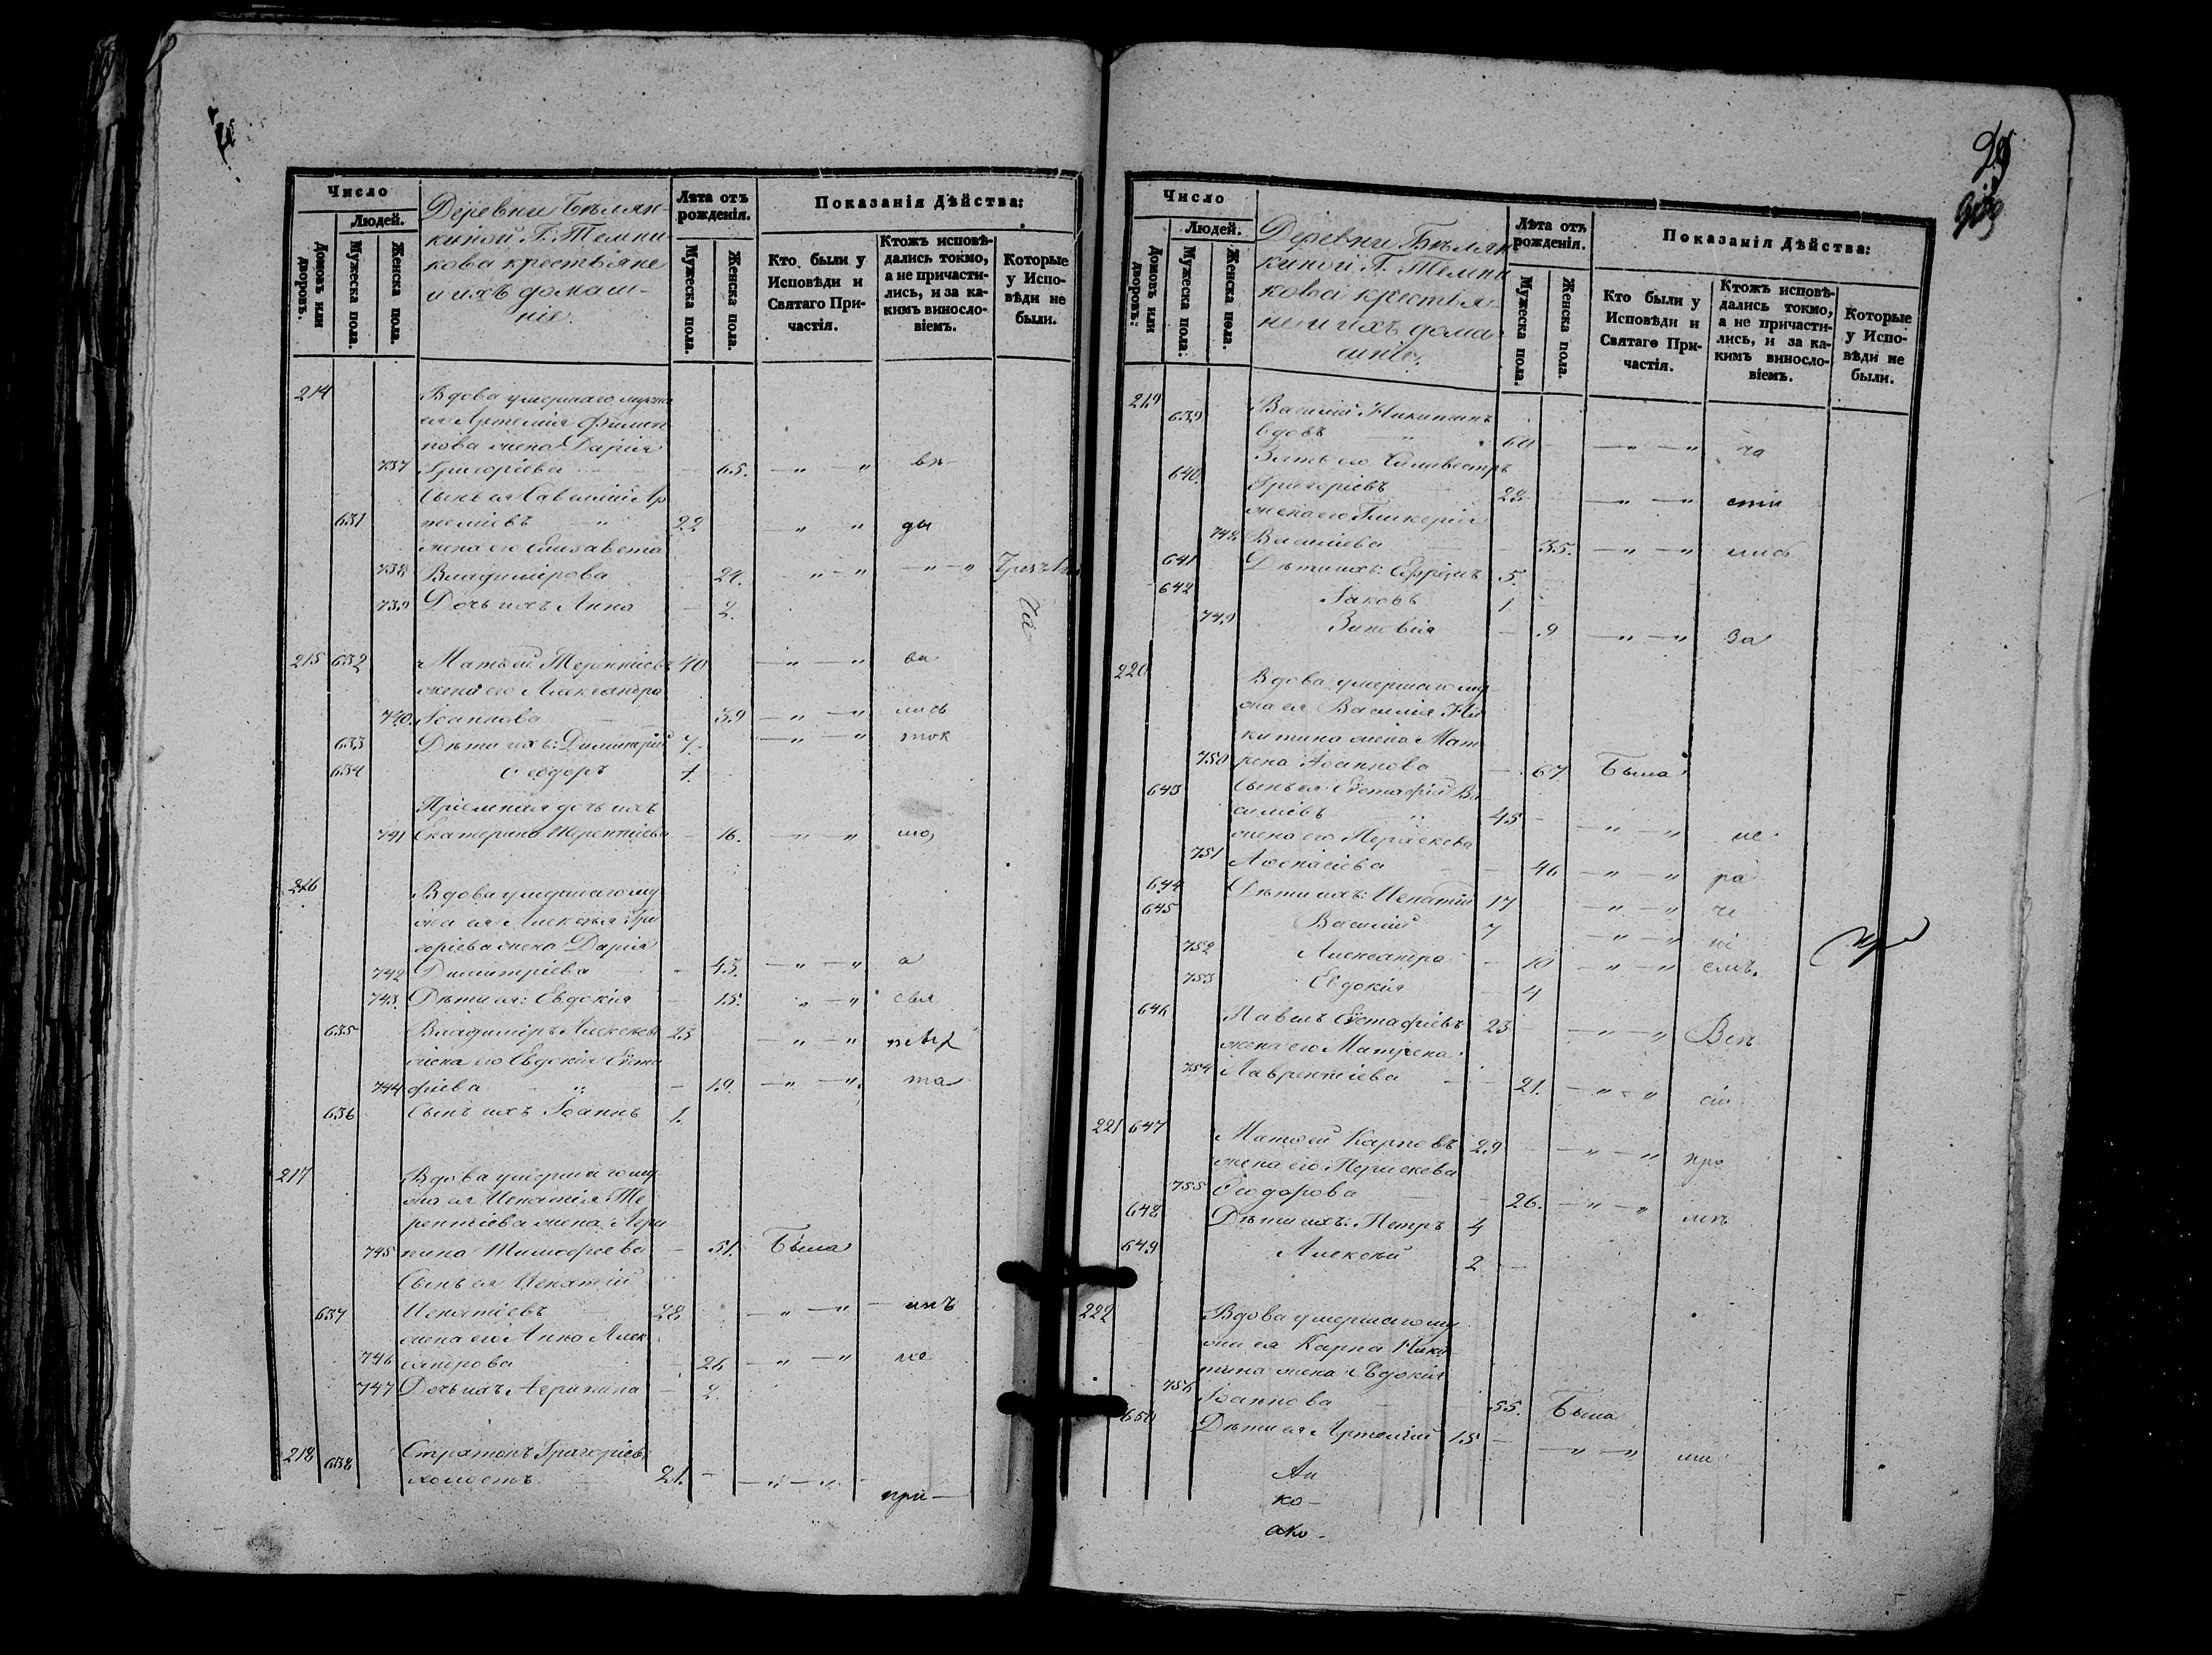 Число
Людей.
Домовъ или дворовъ.
Мужеска пола.
Женска пола.
Деревни Бѣлян-
киной Г. Темни-
кова крестьяне
и ихъ домаш-
ніе.
Лѣта отъ рожденія.
Мужеска пола.
Женска пола.
Показанія Дѣйства:
Кто были у Исповѣди и Святаго При-частія.
Ктожъ исповѣ-дались токмо, а не причасти-лись, и за ка-кимъ винословіемъ.
Которые у Испо-вѣди не были.
214
Вдова умершаго мужа
ея Артемія Филип
пова жена Дарія
737 Григоріева 65. — „ — „
Сынъ ея Савелій Ар
631 теміевъ „ 22 — „ — „ ды
жена его Елисавета
738 Владимірова 24. — „ — „ — „ — „
739 Дочь ихъ Анна — 2.
215 632 Матѳей Терентіевъ 40 — „ — „ ва
жена его Александра
740 Іоаннова 39 — „ — „ лись
633 Дѣти их: Димитрій 7. — „ — „ ток
634 Ѳеодоръ 1.
Пріемная дочь ихъ
741 Екатерина Терентіева — 16. — „ — „ мо,
216
Вдова умершаго му
жа ея Алексѣя Гри
горіева жена Дарія
742 Димитріева — 45. — „ — „ а
743 Дѣти ея: Евдокія — 15. — „ — „ свя
635 Владиміръ Алексѣевъ 23 — „ — „
жена его Евдокія Евста
744 фіева „ — 19. — „ — „ та
636 Сынъ ихъ Іоаннъ 1.
217
Вдова умершаго му
жа ея Игнатія Те
рентіева жена Агри
745 пина Тимофеева — 51. Была
Сынъ ея Игнатій
637 Игнатіевъ 28 — „ — „
жена его Анна Алек
746 сандрова 26 — „ — „ не
747 Дочь ихъ Агрипина — 2.
218 638 Стратонъ Григоріевъ
холостъ 21. — — „ — „ — при—
29
Число
Людей.
Домовъ или дворовъ:
Мужеска пола:
Женска пола.
Деревни Бѣлян
киной Г. Темни
кова крестья-
не и ихъ дома
шніе.
Лѣта отъ рожденія.
Мужеска пола.
Женска пола.
Показанія Дѣйства:
Кто были у Исповѣди и Святаго При-частія.
Ктожъ исповѣ-дались токмо, а не причасти-лись, и за ка-кимъ винословіемъ.
Которые у Испо-вѣди не были.
219
639 Василій Никитинъ
вдовъ „ 60 — „ — „ ча
Зять его Сильвестръ
640 Григоріевъ 28 — „ — „ сти
жена его Гликерія
748 Василіева — 35. — „ — „ лись
641 Дѣти ихъ: Ефремъ 5.
642 Іаковъ 1.
749 Зиновія — 9 — „ — „ За
220
Вдова умершаго му
жа ея Василія Ни
китина жена Мат
750 рена Іоаннова — 67 Была
643 Сынъ ея Евстафій Ва
силіевъ „ 45 — „ — „ не
жена его Параскева
751 Аѳанасіева — 46 — „ — „ ра
644 Дѣти ихъ: Игнатій 17 — „ — „ че
645 Василій 7 — „ — „ ні
752 Александра — 10 — „ — „ емъ.
753 Евдокія — 4
646 Павелъ Евстафіевъ 23 — „ — „ Вси
жена его Матрена
754 Лаврентіева — 21. — „ — „ сіи
221 647 Матѳей Карповъ 29 — „ — „ про
жена его Параскева
755 Ѳеодорова — 26. — „ — „
648 Дѣти ихъ: Петръ 4
649 Алексѣй 2 —
222
Вдова умершаго му
жа ея Карпа Ники
тина жена Евдокія
756 Іоаннова — 55. Была
650 Дѣти ея Артемій 15 — — „ — „
ко—